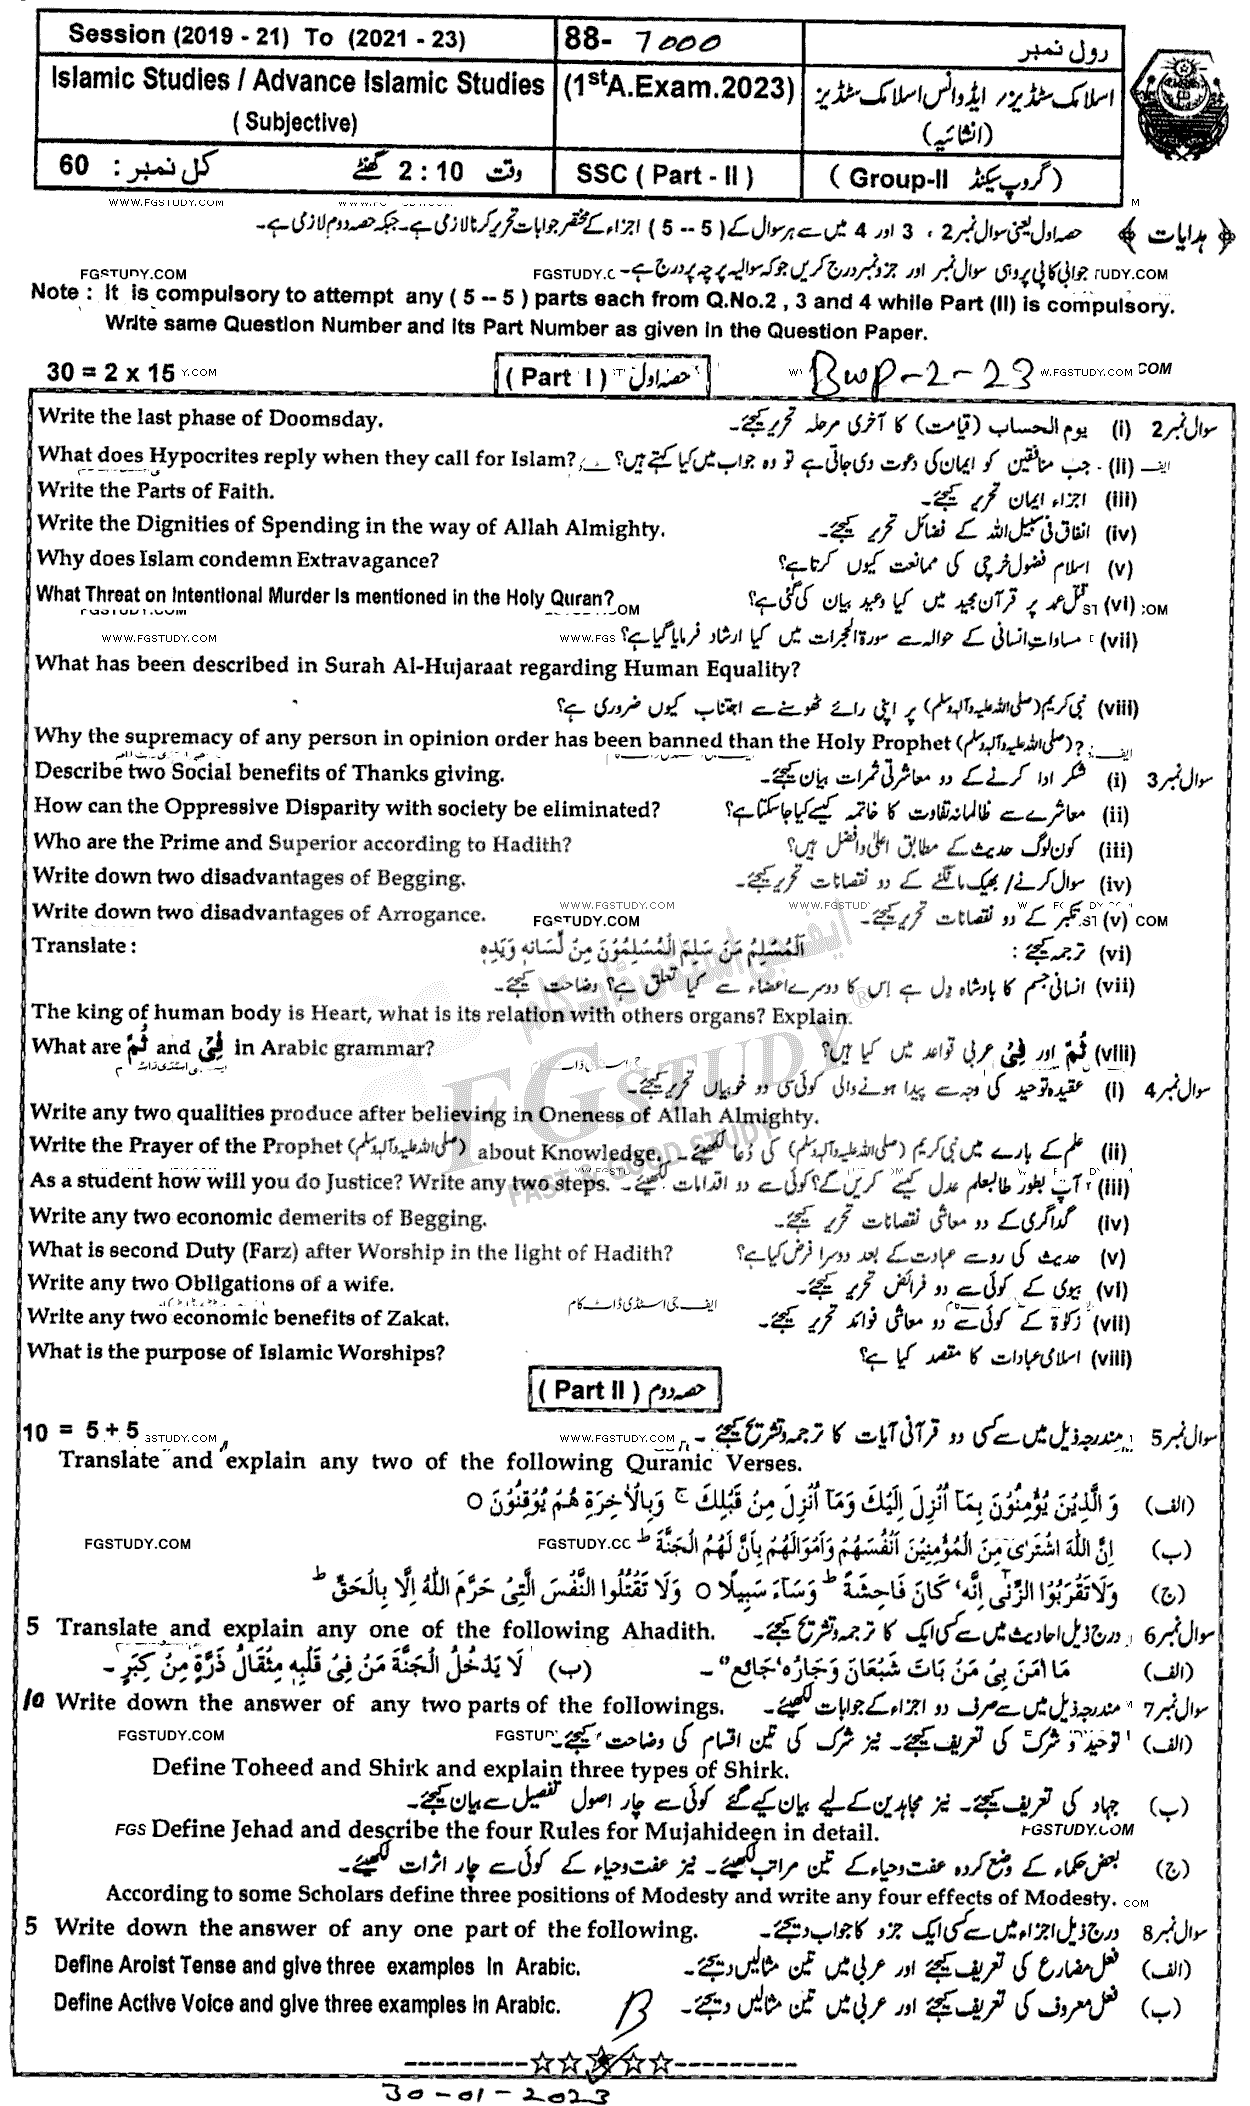 Session (2019 - 21) To (2021 - 23) 88- 7000 رول نمبر
Islamic Studies / Advance Islamic Studies (1stA.Exam.2023) اسلامک سٹڈیز / ایڈوانس اسلامک سٹڈیز
( Subjective) (انشائیہ)
کل نمبر : 60 وقت 2 : 10 گھنٹے SSC ( Part - II ) ( Group-II گروپ سیکنڈ )
WWW.FGSTUDY.COM
﴿ ہدایات ﴾ حصہ اول یعنی سوال نمبر 2 ، 3 اور 4 میں سے ہر سوال کے ( 5 -- 5 ) اجزاء کے مختصر جوابات تحریر کرنا لازمی ہے۔ جبکہ حصہ دوم لازمی ہے۔
FGSTUDY.COM جوابی کاپی پر وہی سوال نمبر اور جزو نمبر درج کریں جو کہ سوالیہ پرچہ پر درج ہے۔
Note : It is compulsory to attempt any ( 5 -- 5 ) parts each from Q.No.2 , 3 and 4 while Part (II) is compulsory.
Write same Question Number and its Part Number as given in the Question Paper.
30 = 2 x 15 ( Part I ) حصہ اول Bwp-2-23
Write the last phase of Doomsday. سوال نمبر 2 (i) یوم الحساب (قیامت) کا آخری مرحلہ تحریر کیجئے۔
What does Hypocrites reply when they call for Islam? (ii) جب منافقین کو ایمان کی دعوت دی جاتی ہے تو وہ جواب میں کیا کہتے ہیں؟
Write the Parts of Faith. (iii) اجزاء ایمان تحریر کیجئے۔
Write the Dignities of Spending in the way of Allah Almighty. (iv) انفاق فی سبیل اللہ کے فضائل تحریر کیجئے۔
Why does Islam condemn Extravagance? (v) اسلام فضول خرچی کی ممانعت کیوں کرتا ہے؟
What Threat on Intentional Murder Is mentioned in the Holy Quran? (vi) قتل عمد پر قرآن مجید میں کیا وعید بیان کی گئی ہے؟
WWW.FGSTUDY.COM (vii) مساوات انسانی کے حوالہ سے سورۃ الحجرات میں کیا ارشاد فرمایا گیا ہے؟
What has been described in Surah Al-Hujaraat regarding Human Equality?
(viii) نبی کریم (صلی اللہ علیہ وآلہ وسلم) پر اپنی رائے ٹھونسنے سے اجتناب کیوں ضروری ہے؟
Why the supremacy of any person in opinion order has been banned than the Holy Prophet (صلی اللہ علیہ وآلہ وسلم) ?
Describe two Social benefits of Thanks giving. سوال نمبر 3 (i) شکر ادا کرنے کے دو معاشرتی ثمرات بیان کیجئے۔
How can the Oppressive Disparity with society be eliminated? (ii) معاشرے سے ظالمانہ تفاوت کا خاتمہ کیسے کیا جا سکتا ہے؟
Who are the Prime and Superior according to Hadith? (iii) کون لوگ حدیث کے مطابق اعلیٰ و افضل ہیں؟
Write down two disadvantages of Begging. (iv) سوال کرنے / بھیک مانگنے کے دو نقصانات تحریر کیجئے۔
Write down two disadvantages of Arrogance. FGSTUDY.COM (v) تکبر کے دو نقصانات تحریر کیجئے۔
Translate : اَلْمُسْلِمُ مَنْ سَلِمَ الْمُسْلِمُوْنَ مِنْ لِّسَانِهٖ وَيَدِهٖ (vi) ترجمہ کیجئے :
(vii) انسانی جسم کا بادشاہ دِل ہے اِس کا دوسرے اعضاء سے کیا تعلق ہے؟ وضاحت کیجئے۔
The king of human body is Heart, what is its relation with others organs? Explain.
What are ثُمَّ and فِیْ in Arabic grammar? (viii) ثُمَّ اور فِیْ عربی قواعد میں کیا ہیں؟
سوال نمبر 4 (i) عقیدہ توحید کی وجہ سے پیدا ہونے والی کوئی سی دو خوبیاں تحریر کیجئے۔
Write any two qualities produce after believing in Oneness of Allah Almighty.
Write the Prayer of the Prophet (صلی اللہ علیہ وآلہ وسلم) about Knowledge. (ii) علم کے بارے میں نبی کریم (صلی اللہ علیہ وآلہ وسلم) کی دُعا لکھیئے۔
As a student how will you do Justice? Write any two steps. (iii) آپ بطور طالبعلم عدل کیسے کریں گے؟ کوئی سے دو اقدامات لکھیئے۔
Write any two economic demerits of Begging. (iv) گداگری کے دو معاشی نقصانات تحریر کیجئے۔
What is second Duty (Farz) after Worship in the light of Hadith? (v) حدیث کی رو سے عبادت کے بعد دوسرا فرض کیا ہے؟
Write any two Obligations of a wife. (vi) بیوی کے کوئی سے دو فرائض تحریر کیجئے۔
Write any two economic benefits of Zakat. (vii) زکوٰۃ کے کوئی سے دو معاشی فوائد تحریر کیجئے۔
What is the purpose of Islamic Worships? (viii) اسلامی عبادات کا مقصد کیا ہے؟
( Part II ) حصہ دوم
10 = 5 + 5 WWW.FGSTUDY.COM سوال نمبر 5 مندرجہ ذیل میں سے کسی دو قرآنی آیات کا ترجمہ و تشریح کیجئے۔
Translate and explain any two of the following Quranic Verses.
(الف) وَالَّذِيْنَ يُؤْمِنُوْنَ بِمَآ اُنْزِلَ اِلَيْكَ وَمَآ اُنْزِلَ مِنْ قَبْلِكَ ۚ وَبِالْاٰخِرَةِ هُمْ يُوْقِنُوْنَ ○
FGSTUDY.COM (ب) اِنَّ اللّٰهَ اشْتَرٰى مِنَ الْمُؤْمِنِيْنَ اَنْفُسَهُمْ وَاَمْوَالَهُمْ بِاَنَّ لَهُمُ الْجَنَّةَ ؕ
(ج) وَلَا تَقْرَبُوا الزِّنٰٓى اِنَّهٗ كَانَ فَاحِشَةً ؕ وَسَآءَ سَبِيْلًا ○ وَلَا تَقْتُلُوا النَّفْسَ الَّتِيْ حَرَّمَ اللّٰهُ اِلَّا بِالْحَقِّ ؕ
5 Translate and explain any one of the following Ahadith. سوال نمبر 6 درج ذیل احادیث میں سے کسی ایک کا ترجمہ و تشریح کیجئے۔
(الف) مَا اٰمَنَ بِيْ مَنْ بَاتَ شَبْعَانَ وَجَارُهٗ جَائِعٌ ۔ (ب) لَا يَدْخُلُ الْجَنَّةَ مَنْ فِيْ قَلْبِهٖ مِثْقَالُ ذَرَّةٍ مِنْ كِبَرٍ ۔
10 Write down the answer of any two parts of the followings. سوال نمبر 7 مندرجہ ذیل میں سے صرف دو اجزاء کے جوابات لکھیئے۔
FGSTUDY.COM (الف) توحید و شرک کی تعریف کیجئے۔ نیز شرک کی تین اقسام کی وضاحت کیجئے۔
Define Toheed and Shirk and explain three types of Shirk.
(ب) جہاد کی تعریف کیجئے۔ نیز مجاہدین کے لیے بیان کیے گئے کوئی سے چار اصول تفصیل سے بیان کیجئے۔
Define Jehad and describe the four Rules for Mujahideen in detail. FGSTUDY.COM
(ج) بعض حکماء کے وضع کردہ عفت و حیاء کے تین مراتب لکھیئے۔ نیز عفت و حیاء کے کوئی سے چار اثرات لکھیئے۔
According to some Scholars define three positions of Modesty and write any four effects of Modesty.
5 Write down the answer of any one part of the following. سوال نمبر 8 درج ذیل اجزاء میں سے کسی ایک جزو کا جواب دیجئے۔
Define Aroist Tense and give three examples in Arabic. (الف) فعل مضارع کی تعریف کیجئے اور عربی میں تین مثالیں دیجئے۔
Define Active Voice and give three examples in Arabic. (ب) فعل معروف کی تعریف کیجئے اور عربی میں تین مثالیں دیجئے۔
B
30-01-2023